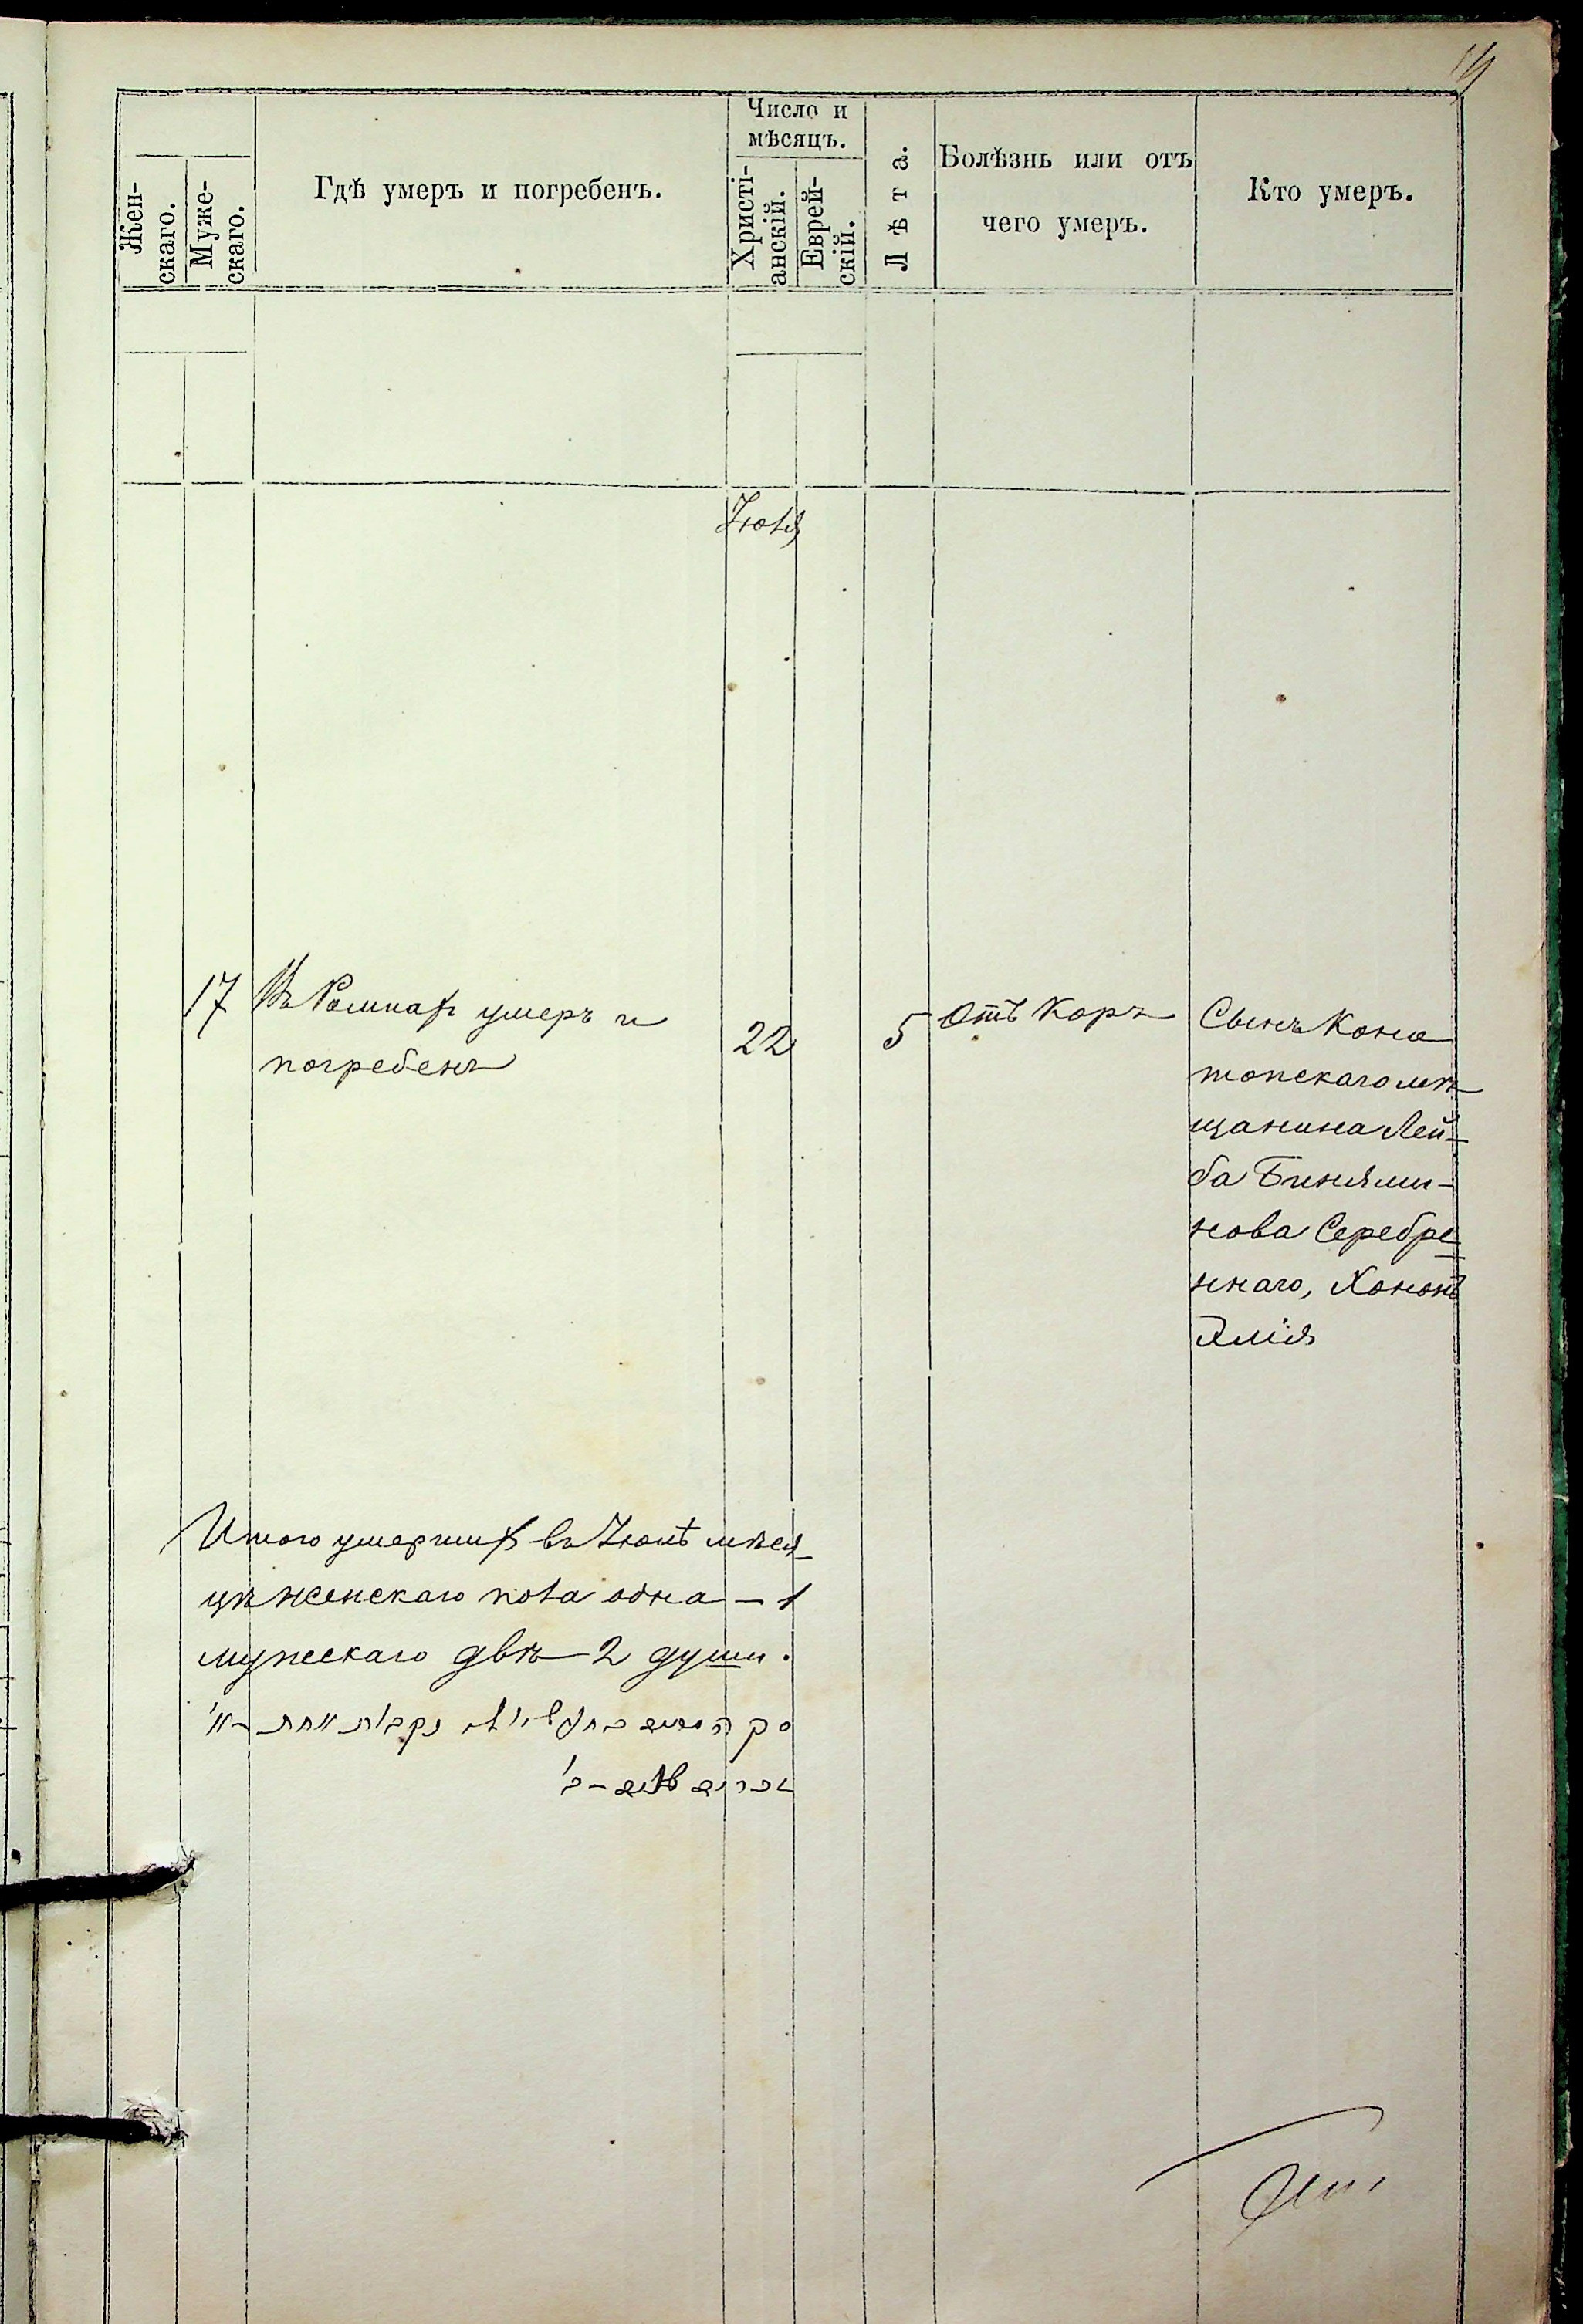 Число и
мѣсяцъ.
Жен-
скаго.
Муже-
скаго.
Гдѣ умеръ и погребенъ.
Христі-
анскій.
Еврей-
скій.
Лѣта.
Болѣзнь или отъ
чего умеръ.
Кто умеръ.
Іюля
17
Въ Ромнахъ умеръ и
погребенъ
22
5
Отъ Коръ
Сынъ Коно
топскаго мѣ
щанина Лей-
ба Бинями-
нова Серебре
ннаго, Хононъ
Итого умершихъ въ Іюлѣ мѣся
цѣ женскаго пола одна – 1
мужескаго двѣ 2 души.